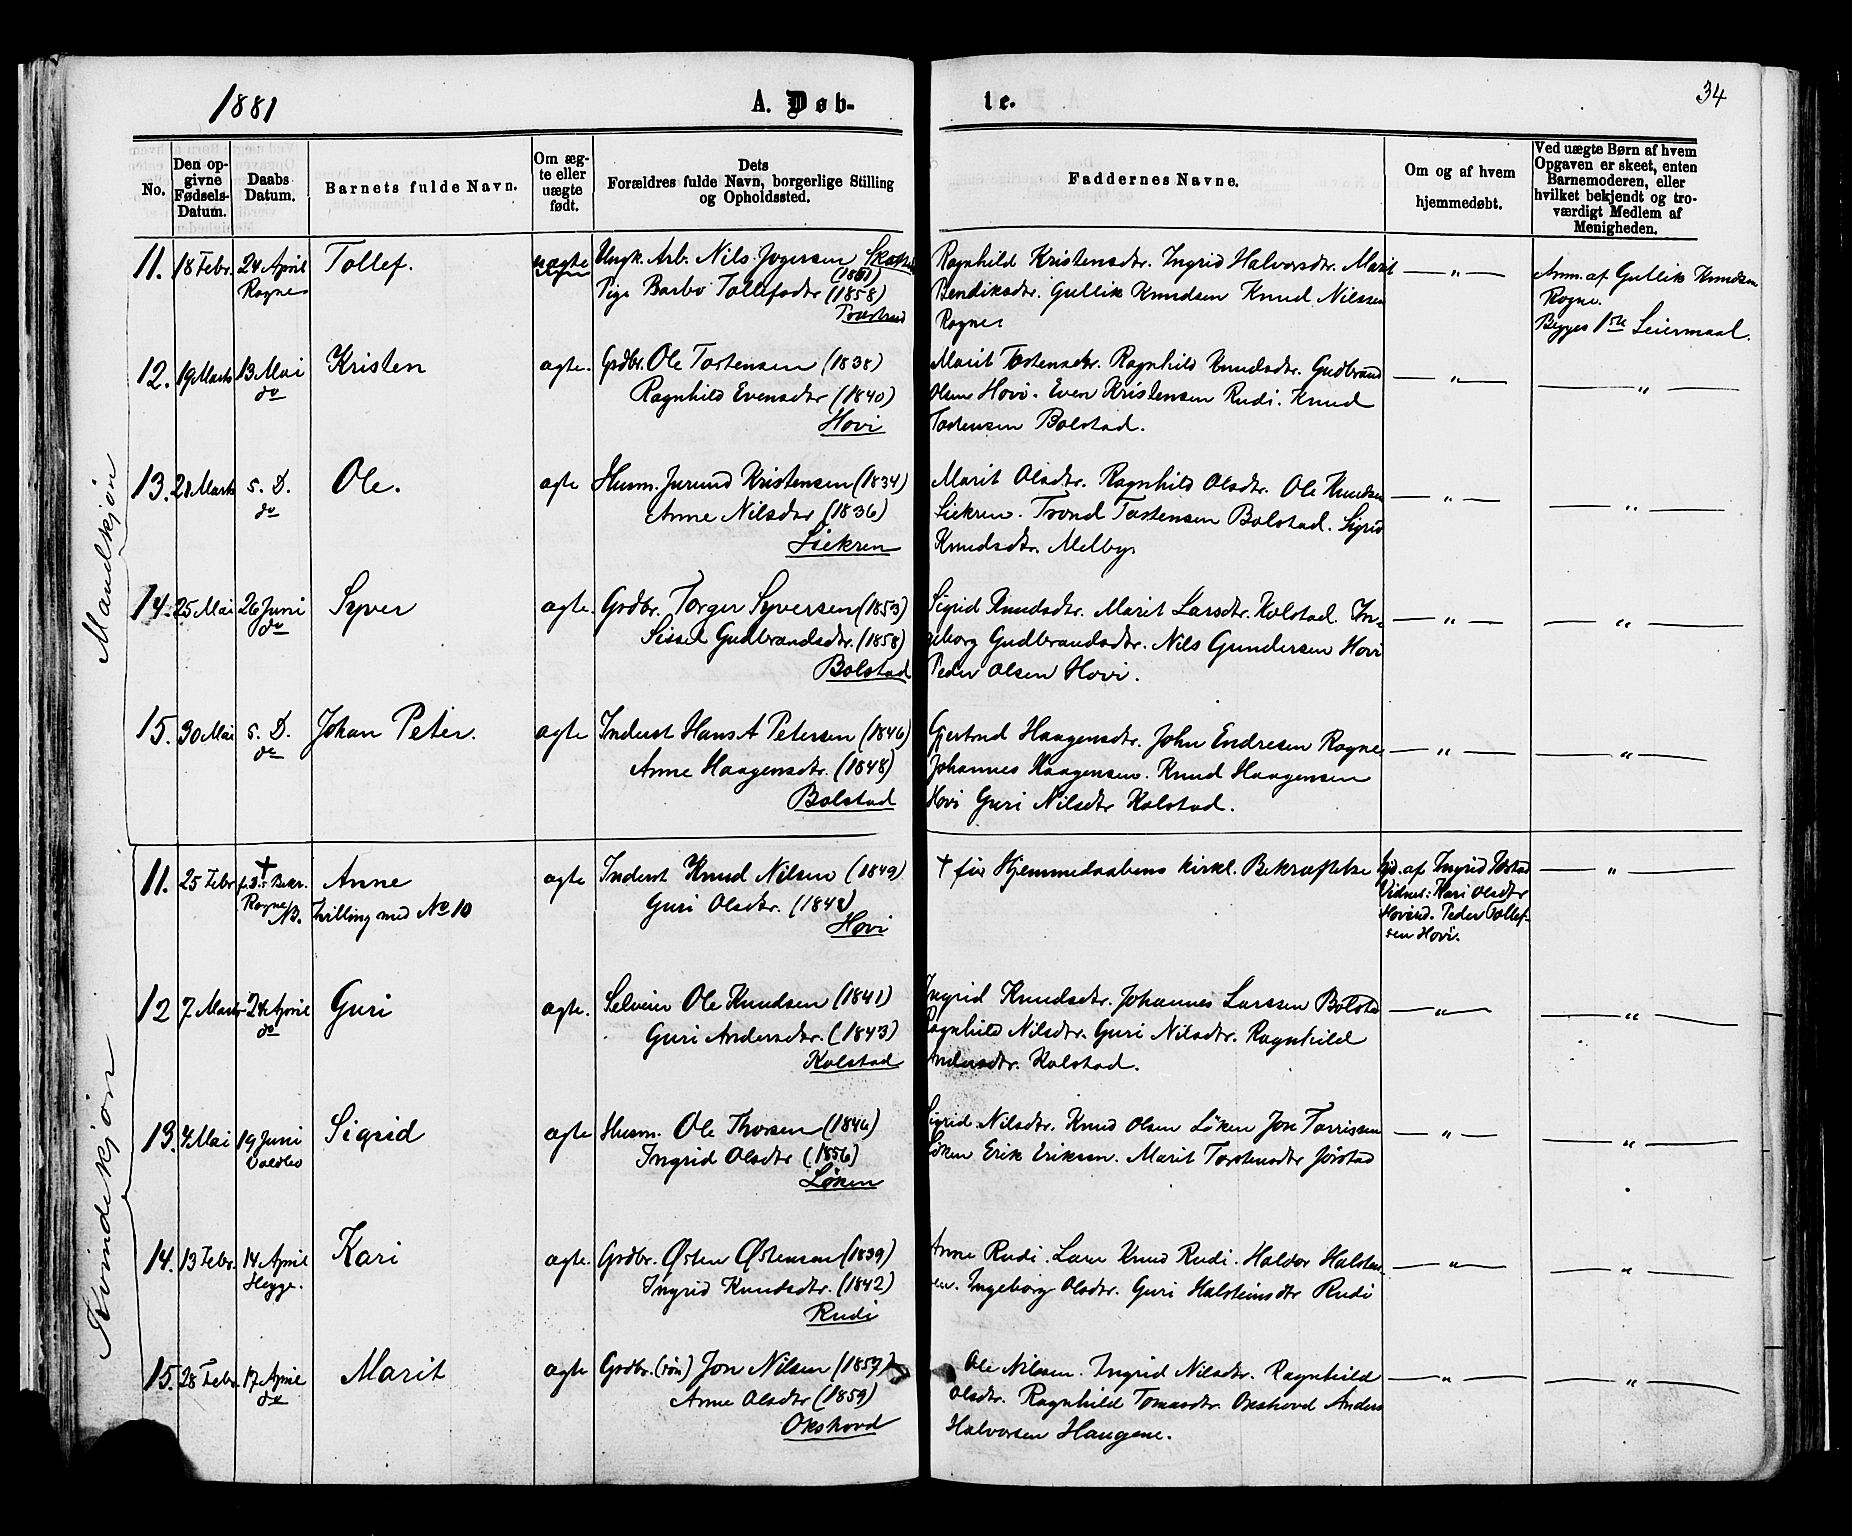 1881
A. Døb-
te.
34
No.
Den op-
givne
Fødsels-
Datum.
Daabs
Datum.
Barnets fulde Navn.
Om æg-
te eller
uægte
født.
Dets
Forældres fulde Navn, borgerlige Stilling
og Opholdssted.
Faddernes Navne.
Om og af hvem
hjemmedøbt.
Ved uægte Børn af hvem
Opgaven er skeet, enten
Barnemoderen, eller
hvilket bekjendt og tro-
værdigt Medlem af
Menigheden.
Mandkjøn
11. 18 Febr. 24 April Tollef. uægte Ungk. Arb. Nils Jogersen
Rogne
Pige Barbo Tollefsdtr (1858)
Ragnhild Kristensdtr. Ingrid Halvorsdtr. Marit
Bendiksdtr. Gullik Knudsen Knud Nilssen
Rogne.
— " —
Anm. af Gullik Knudsen
Rogne.
Begges 1ste Leiermaal.
12. 19 Marts 13 Mai Kristen ægte. Grdbr. Ole Tostensen (1838)
do
Ragnhild Evensdtr (1840)
Hovi
Marit Tostensdtr. Ragnhild Knudsdtr. Gudbrand
Olsen Hovi. Even Kristensen Rudi. Knud
Tostensen Bolstad.
— " —
— " —
13. 28 Marts s. D. Ole. ægte Husm. Jurund Kristensen (1834)
do
Anne Nilsdtr (1836)
Siekren
Marit Olsdtr. Ragnhild Olsdtr. Ole Knudsen
Siekren. Trond Tostensen Bolstad. Sigrid
Knudsdtr. Melby.
— " —
— " —
14. 25 Mai 26 Juni Syver ægte. Grdbr. Torger Syversen (1853)
do
Sissel Gudbrandsdtr. (1858)
Bolstad
Sigrid Knudsdtr. Marit Larsdtr. Kolstad. In-
geborg Gudbrandsdtr. Nils Gundersen Hovi
Peder Olsen Hovi.
— " —
— " —
15. 30 Mai s. D. Johan Peter. ægte Inderst Hans A Petersen (1846)
do
Anne Haagensdtr. (1848)
Bolstad
Gjertrud Haagensdtr. John Endresen Rogne
Johannes Haagensen. Knud Haagensen
Hovi Guri Nilsdtr Kolstad.
— " —
— " —
Kvindekjøn
11. 25 Febr † Anne ægte Inderst Knud Nilsen (1849)
f. D.s Bekr.
Rogne
NB. Tvilling med No 10
Guri Olsdtr.
Hovi
† før Hjemmedaabens kirkl. Bekræftelse
Hjd. af Ingrid
Vidner: Kari Olsdtr
Peder Tollef-
sen Hovi.
— " —
12 7 Marts 24 April Guri ægte. Selveier Ole Knudsen (1841)
do
Guri Andersdtr. (1843)
Kolstad
Ingrid Knudsdtr. Johannes Larssen Bolstad
Ragnhild Nilsdtr. Guri Nilsdtr. Ragnhild
Andersdtr. Kolstad.
— " —
— " —
13. 4 Mai 19 Juni Sigrid ægte Husm. Ole Thorsen (1846)
Voldbo
Ingrid Olsdtr (1856)
Løken
Sigrid Nilsdtr. Knud Olsen Løken Jon Torrissen
Løken Erik Eriksen. Marit Torstensdtr Jørstad
— " —
— " —
14. 13 Febr. 14 April Kari ægte. Grdbr. Østen Østensen (1839)
Hegge.
Ingrid Knudsdtr. (1842)
Rudi
Anne Rudi. Lars Knud Rudi. Haldor Halsten-
sen. Ingeborg Olsdtr. Guri Halsteinsdtr Rudi
— " —
— " —
15. 28 Febr. 17 April Marit ægte Grdbr. (søn) Jon Nilsen (1857)
do
Anne Olsdtr (1859)
Okshovd
Ole Nilssen. Ingrid Nilsdtr. Ragnhild
Olsdtr. Ragnhild Tomasdtr. Okshovd Anders
Halvorsen Haugene.
— " —
— " —